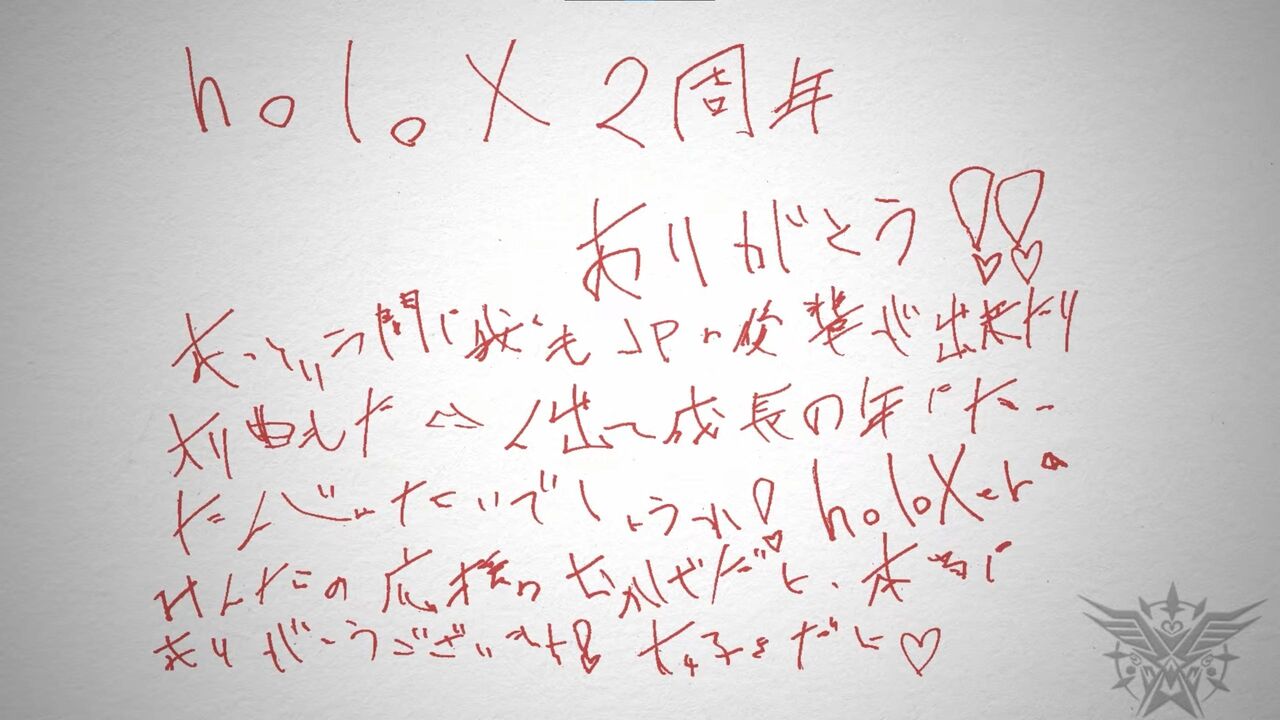 holoX 2周年
ありがとう!!
あっという間に我々もJPの後輩が出来たり
大り曲もたくさん出て成長の年になった
んじゃないでしょうか! holoXerの
みんなの応援のおかげだよ、本当に
ありがとうございます! 大好きだよ♡